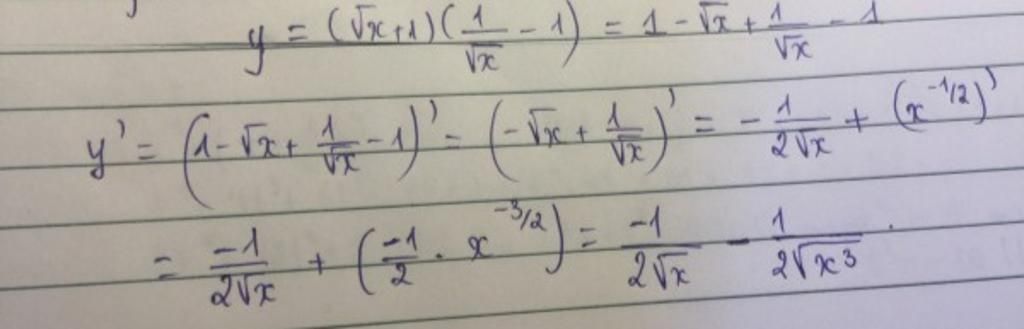 y = (√x+1)(1/√x - 1) = 1 - √x + 1/√x - 1
y' = (1 - √x + 1/√x - 1)' = (-√x + 1/√x)' = - 1/2√x + (x^-1/2)'
= -1/2√x + (-1/2 · x^-3/2) = -1/2√x - 1/2√x³.